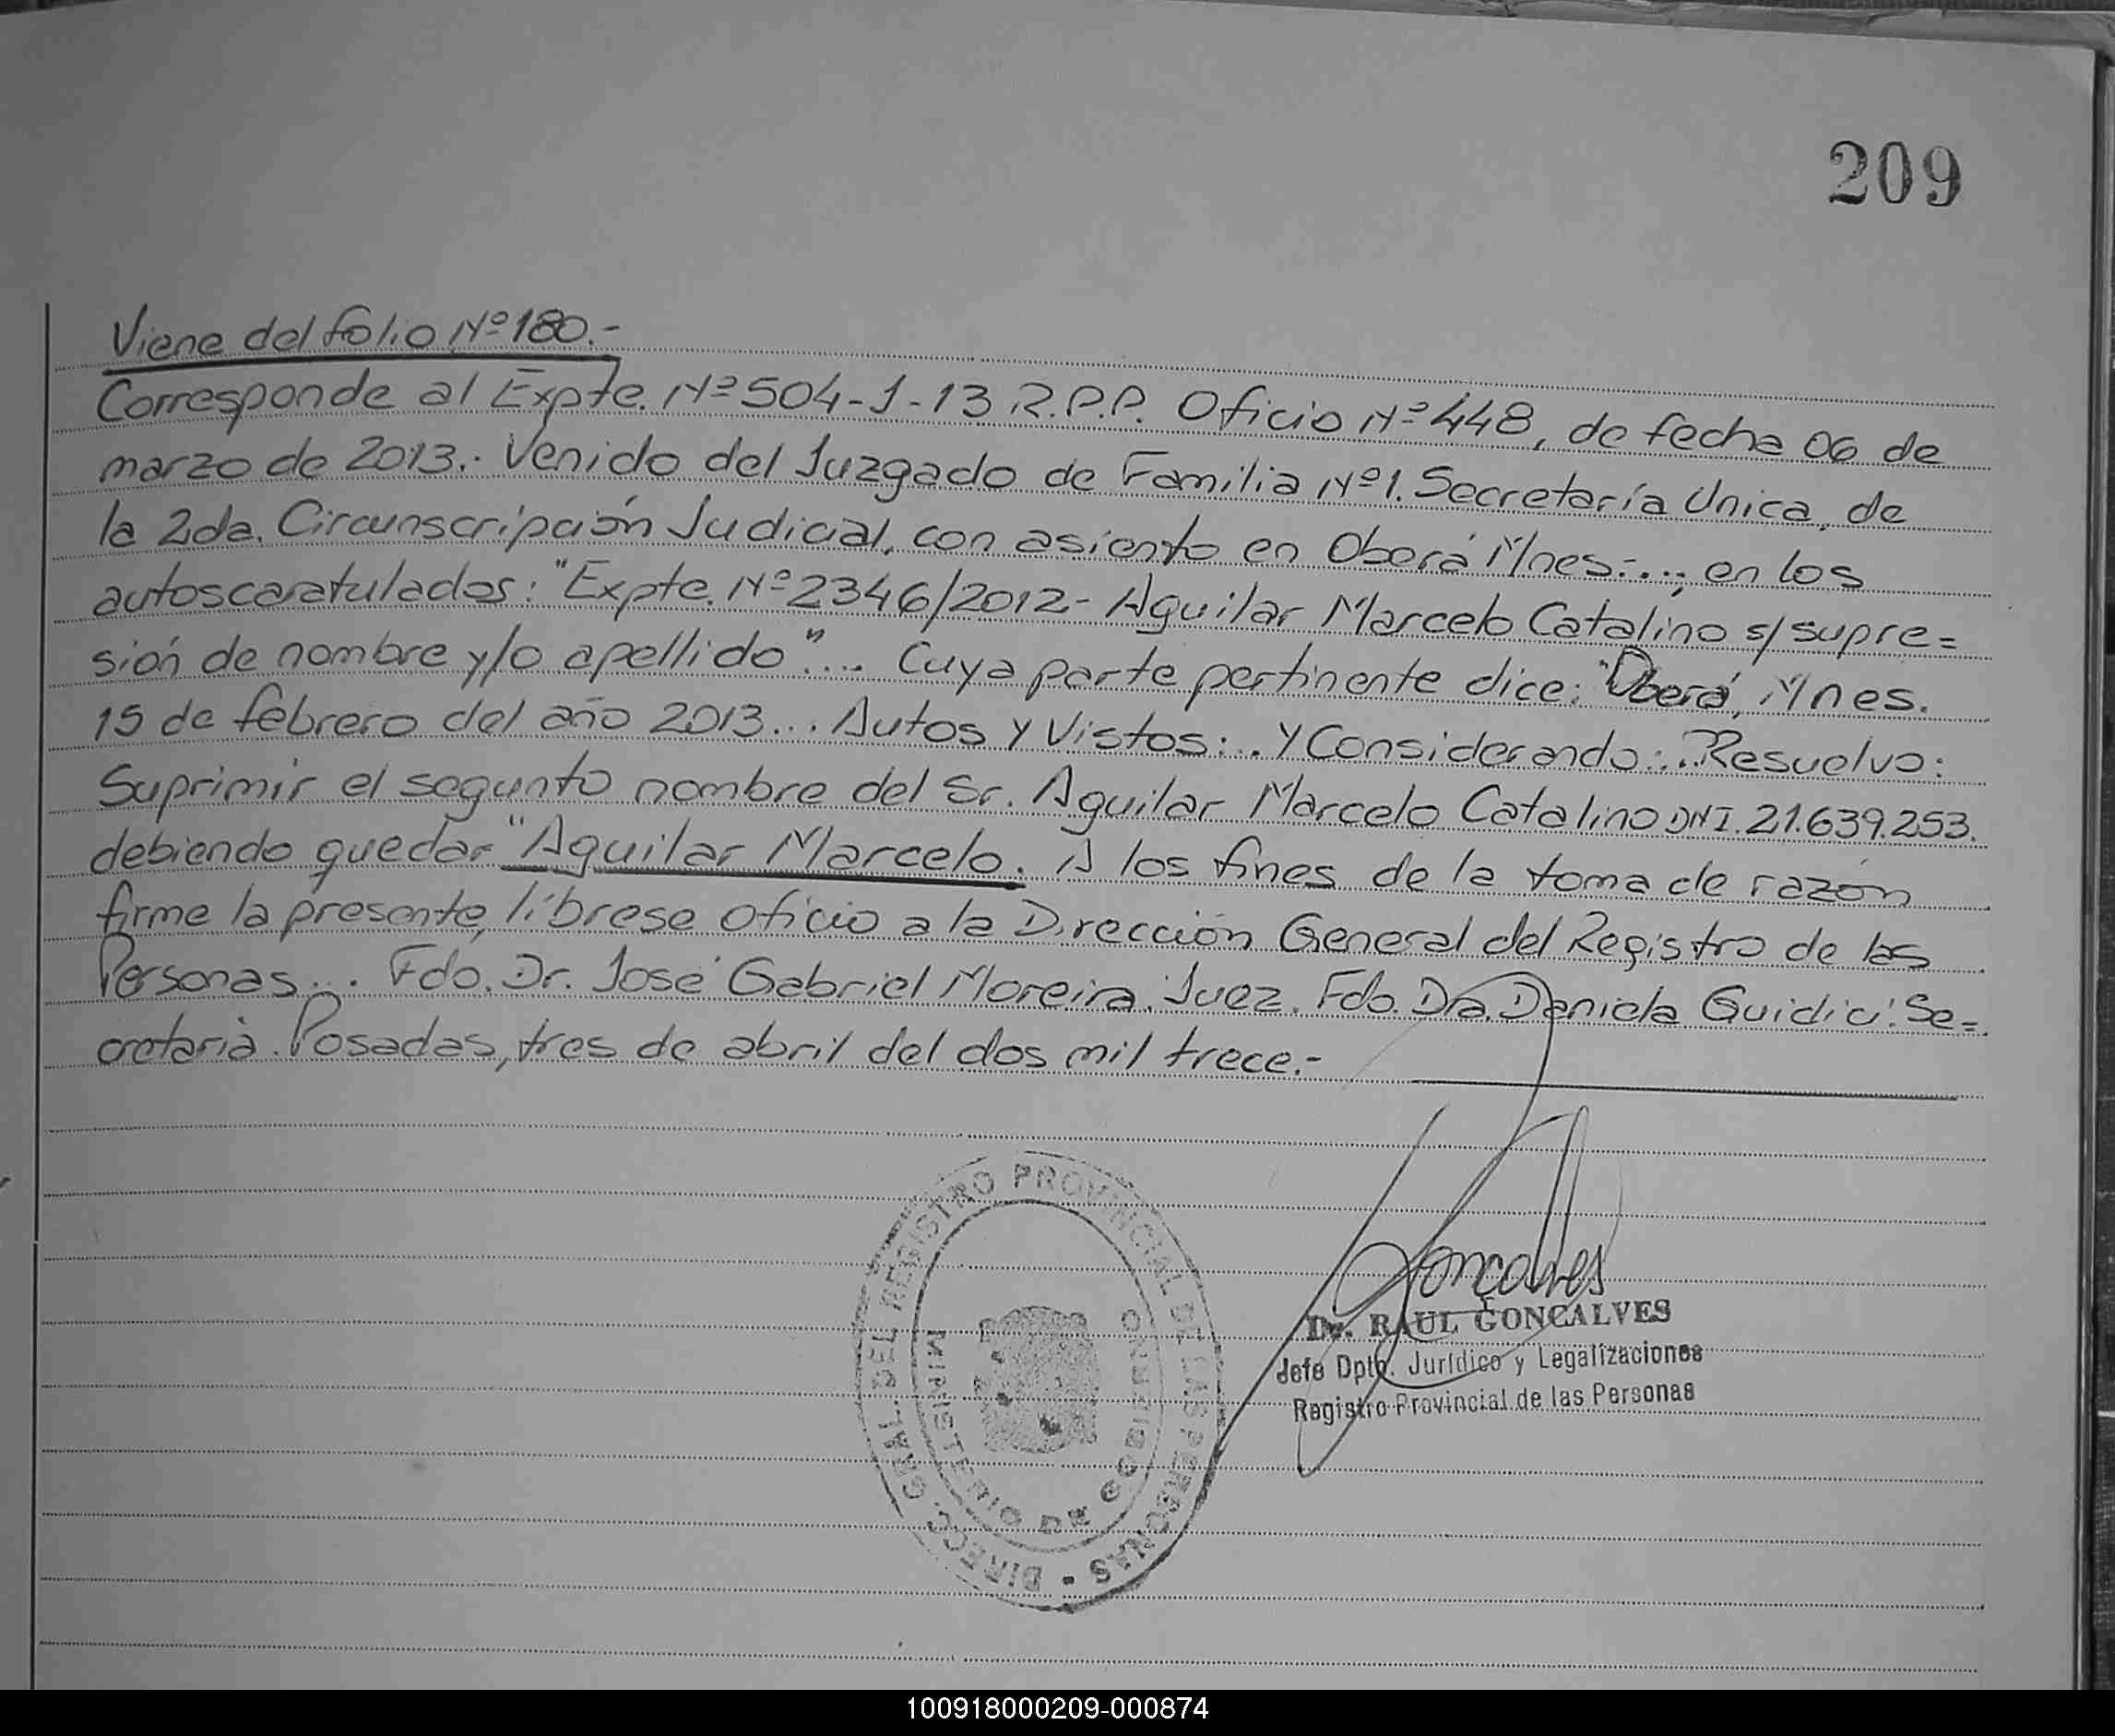 209
Viene del folio Nº 180.-
Corresponde al Expte. Nº 504-1-13 R.P.P. Oficio Nº 448, de fecha 06 de
marzo de 2013.- Venido del Juzgado de Familia Nº 1. Secretaría Unica, de
la 2da. Circunscripción Judicial, con asiento en Oberá Mnes:..., en los
autoscaratulados: "Expte. Nº 2346/2012- Aguilar Marcelo Catalino s/supre=
sión de nombre y/o apellido"... Cuya parte pertinente dice: "Oberá, Mnes.
15 de febrero del año 2013... Autos y Vistos:.. Y Considerando:.. Resuelvo:
Suprimir el segunto nombre del Sr. Aguilar Marcelo Catalino DNI. 21.639.253.
debiendo quedar "Aguilar Marcelo. A los fines de la toma de razón
firme la presente, líbrese oficio a la Dirección General del Registro de las
Personas... Fdo. Dr. José Gabriel Moreira. Juez. Fdo. Dra. Daniela Guidici. Se=
cretaria. Posadas, tres de abril del dos mil trece.-
DIRECC. GRAL. DEL REGISTRO PROVINCIAL DE LAS PERSONAS -
MINISTERIO DE GOBIERNO
Goncalves
Dr. RAUL GONCALVES
Jefe Dpto. Jurídico y Legalizaciones
Registro Provincial de las Personas
100918000209-000874